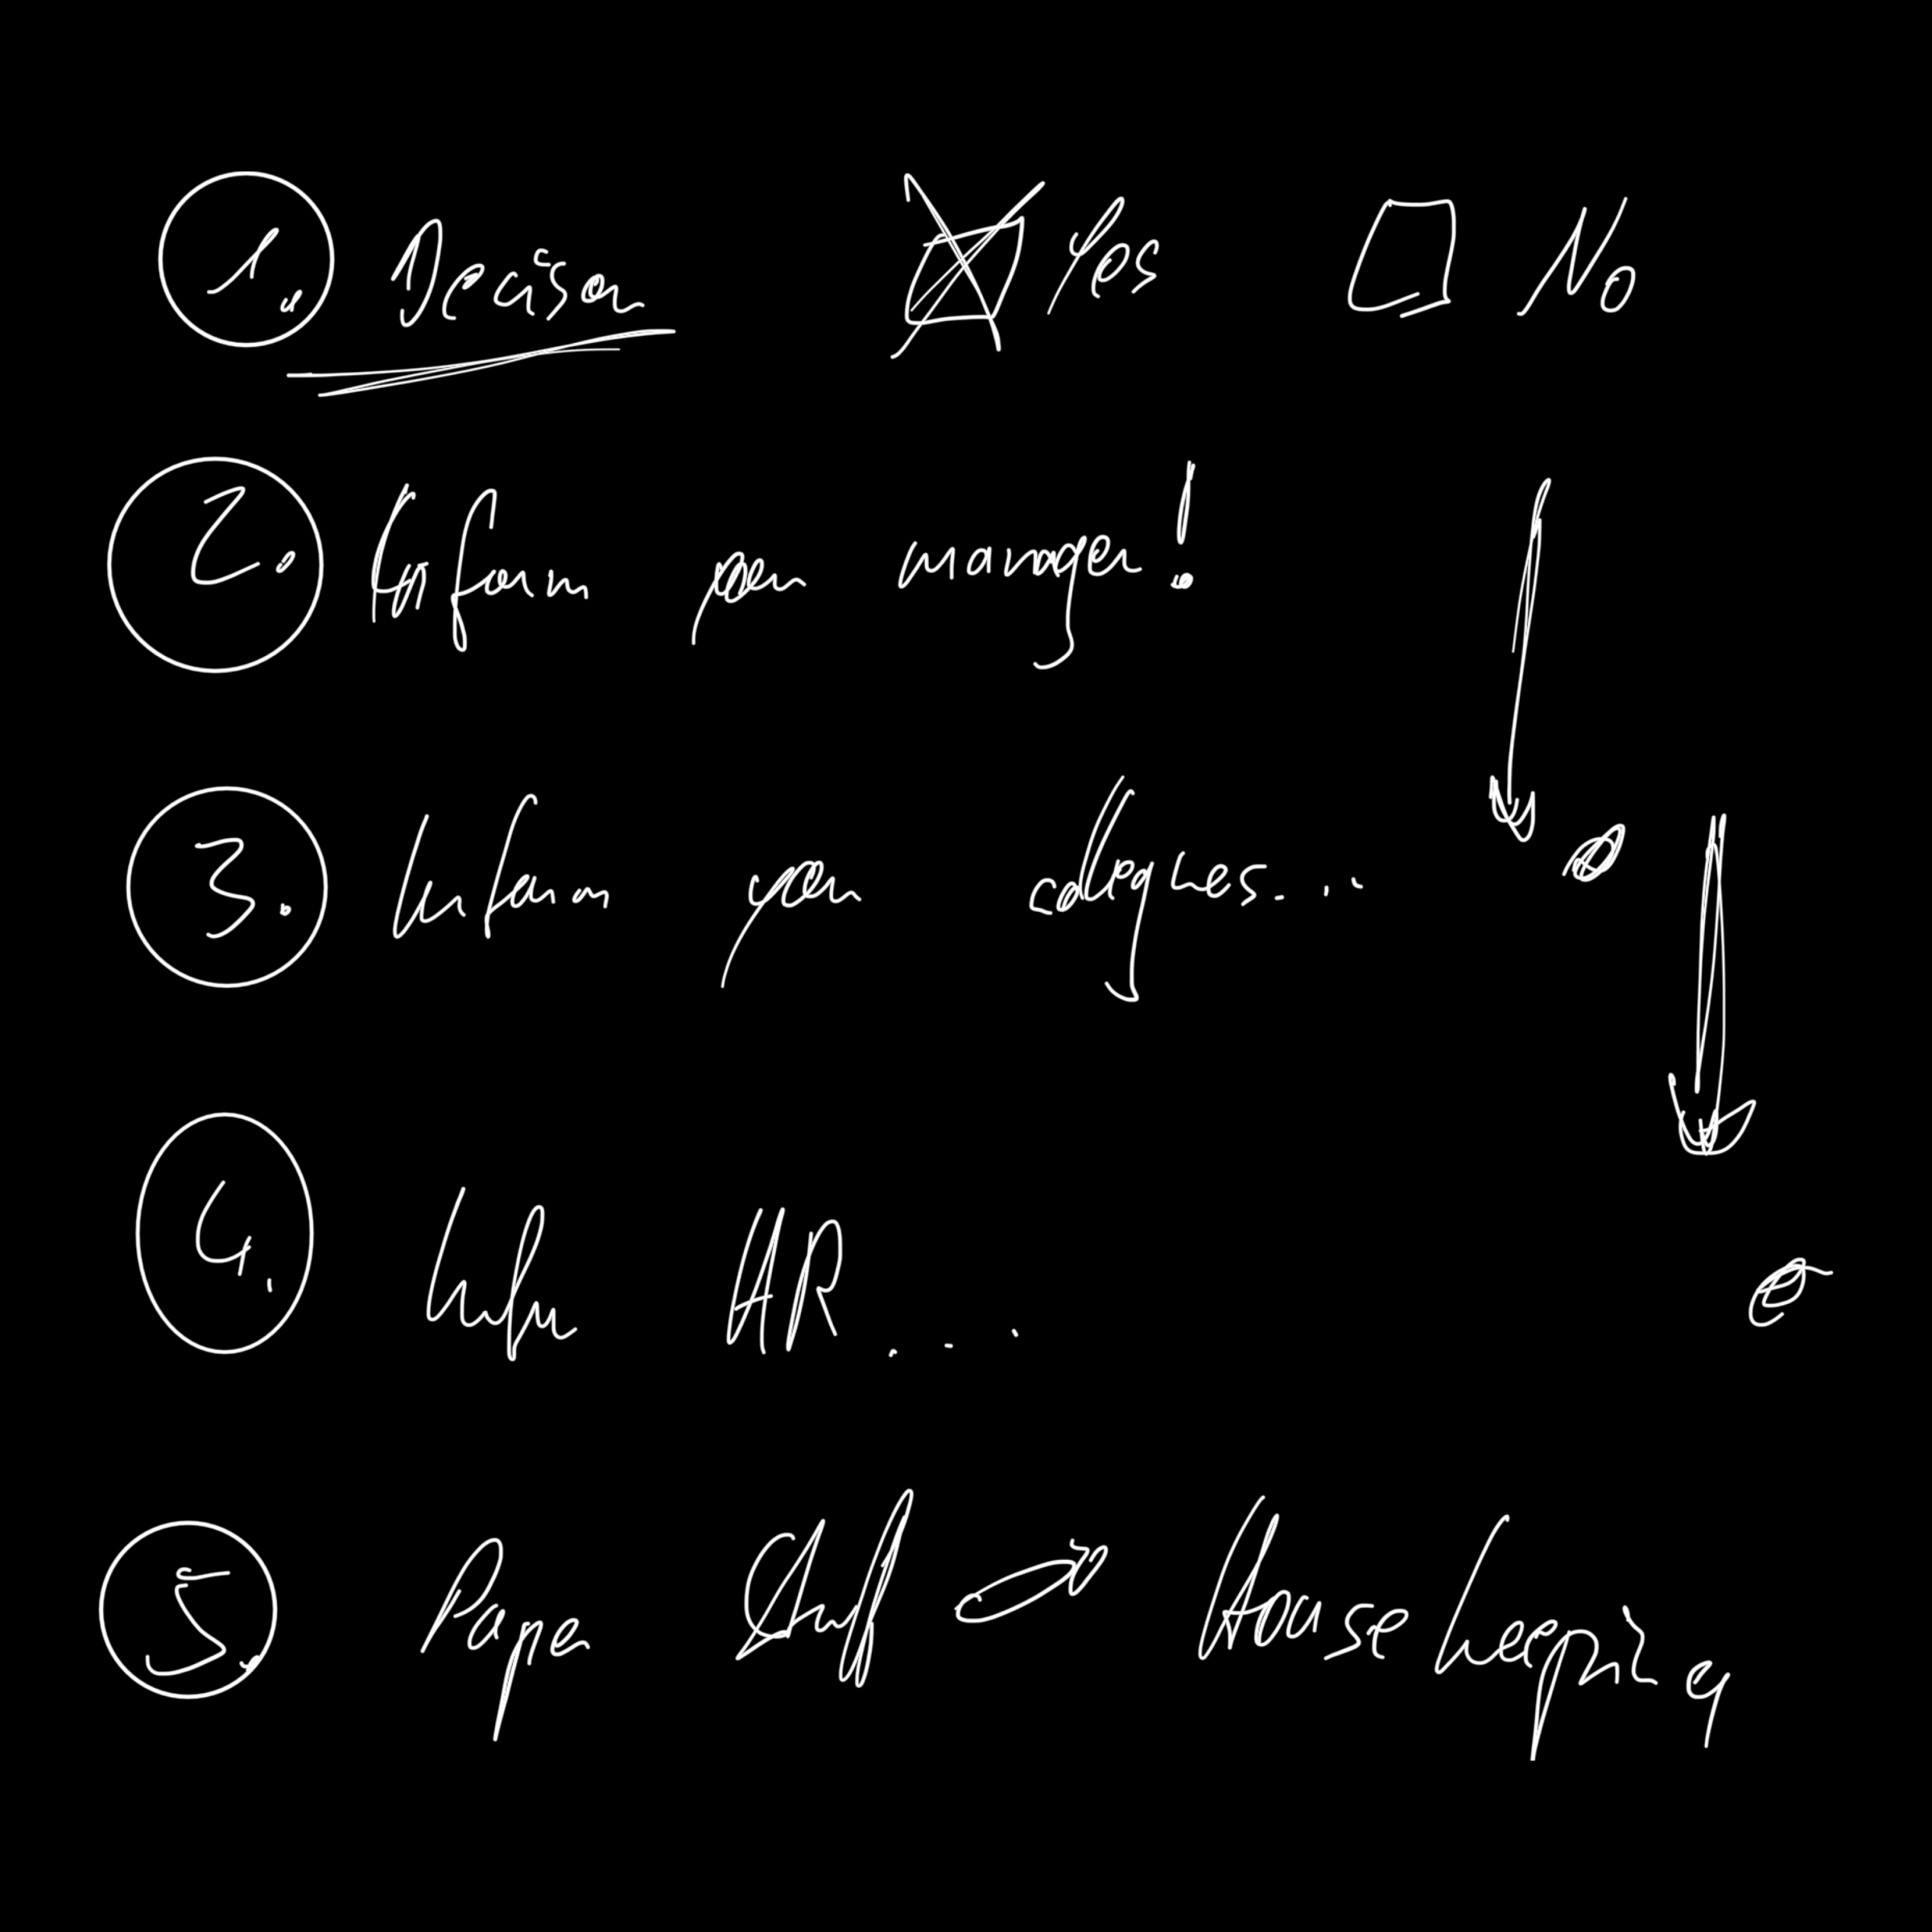 1. Decison Yes No
2. Inform your manager!
3. Inform your collegues...
4. Inform HR...
5. Paper Stuff Housekeeping